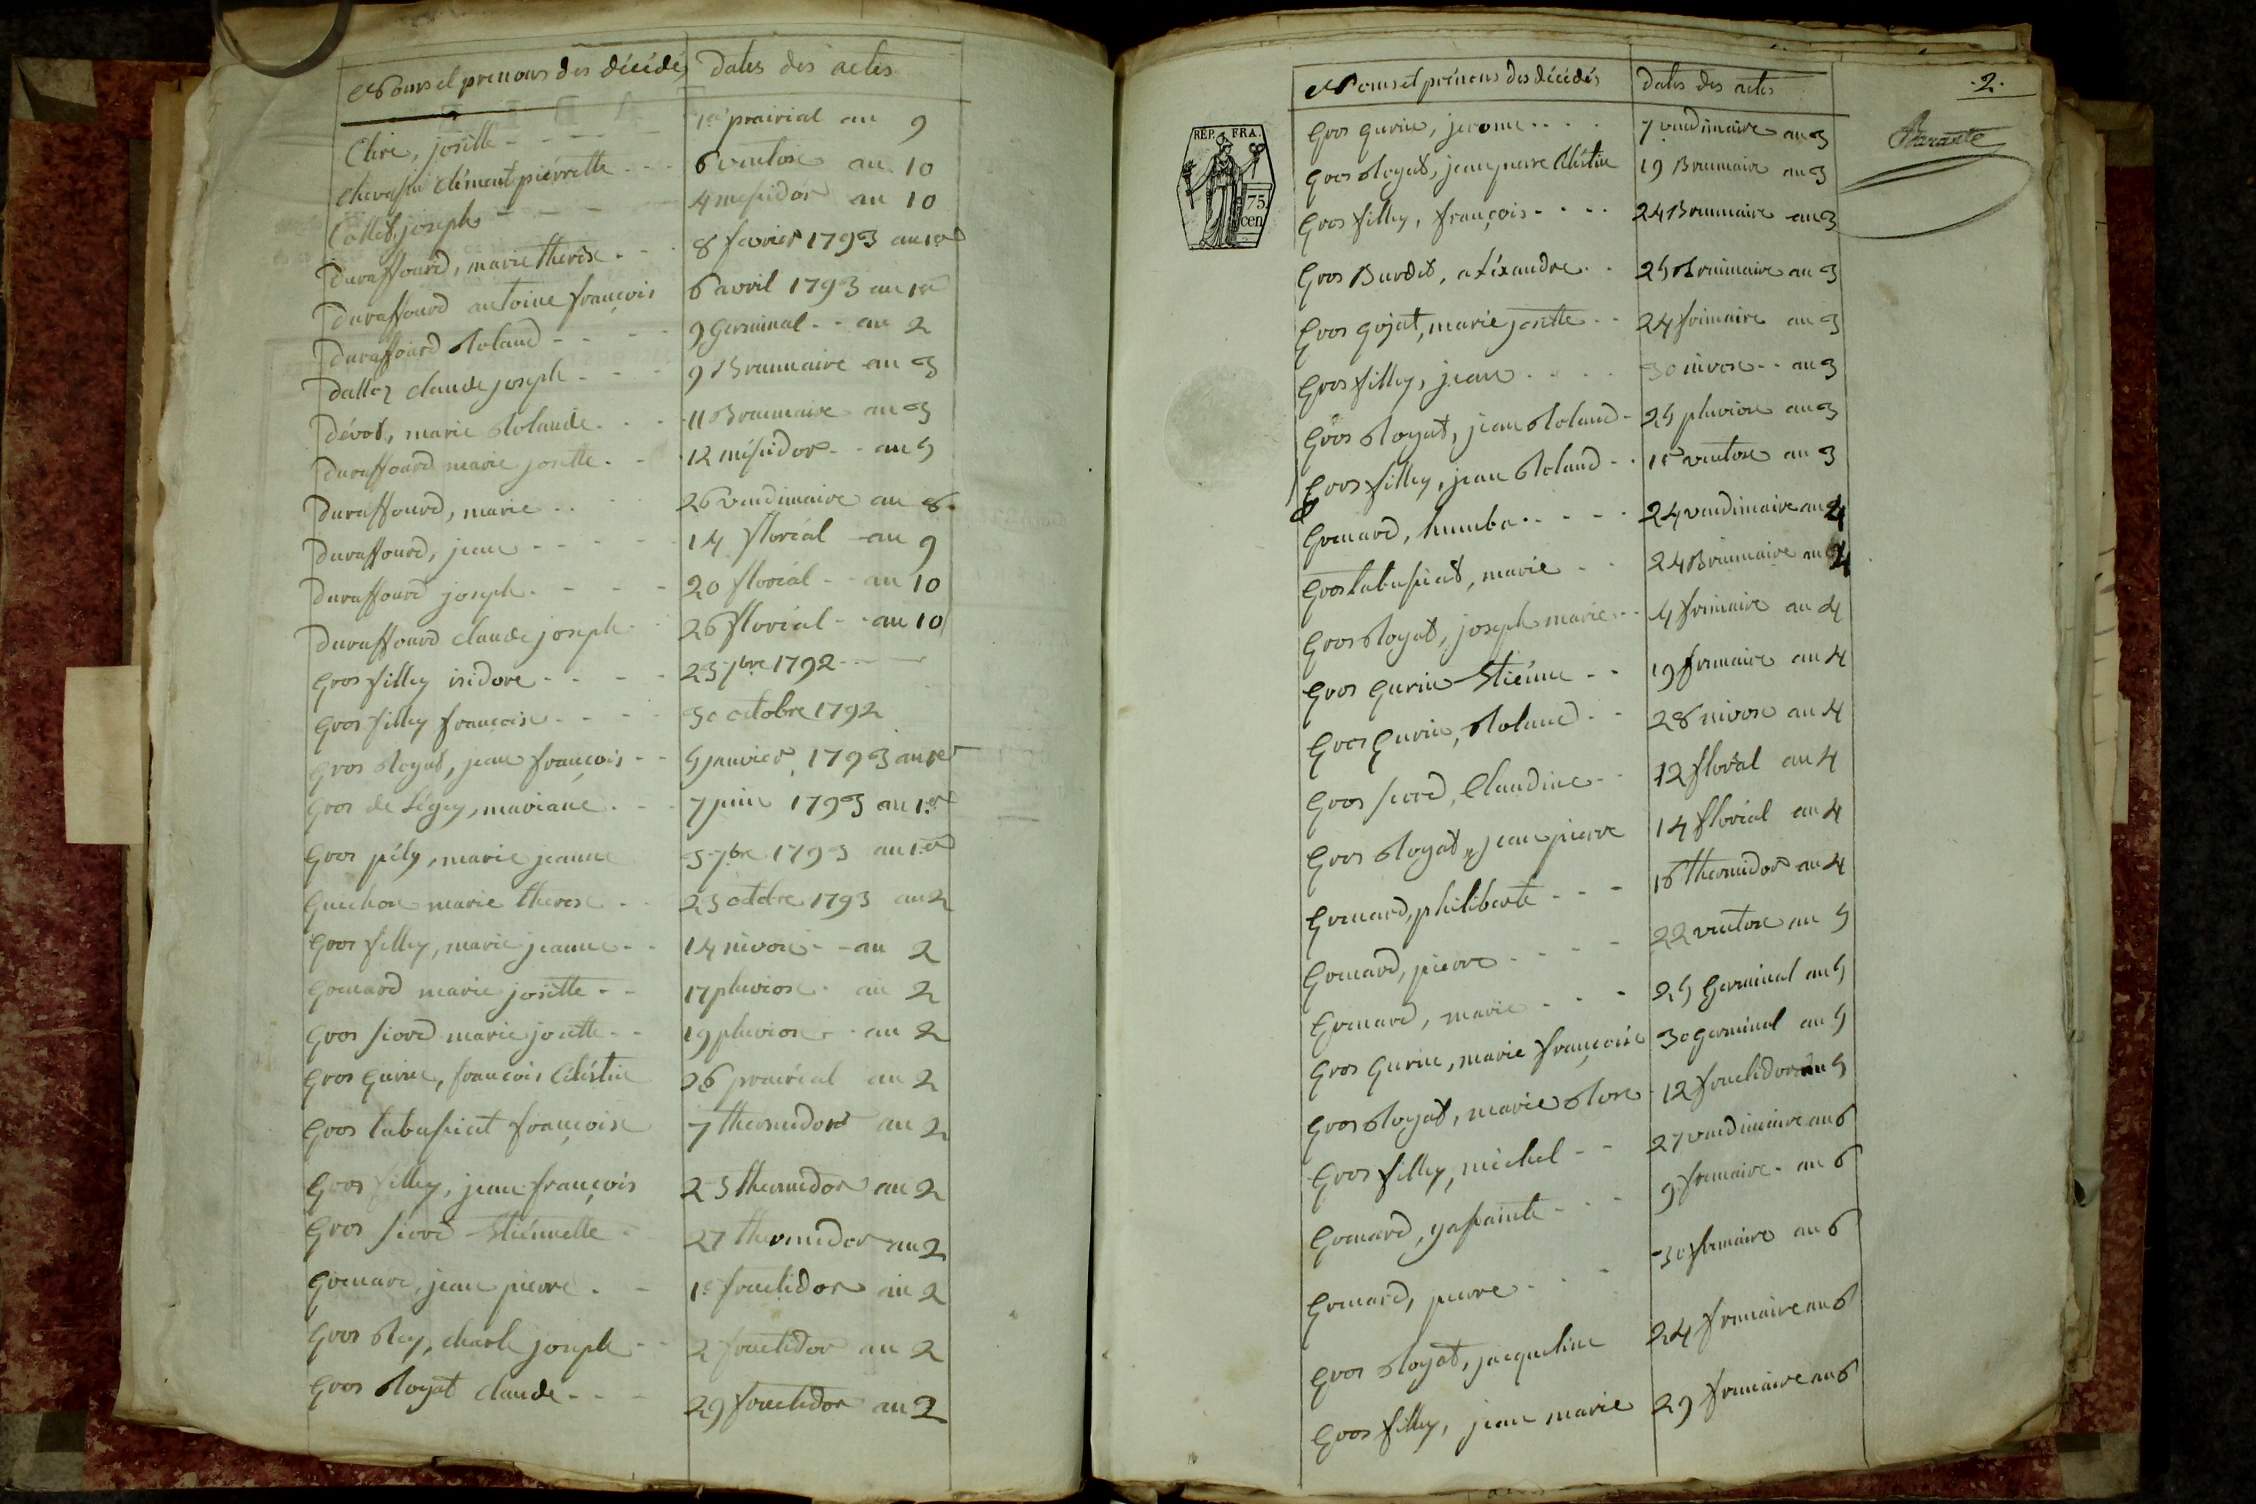 Noms et prénoms des décédés Dates des actes
Clere, josette - - 1er prairial an 9
Chevassu Clément pierrette - - - 6 ventose an 10
Collet, joseph - - - 4 messidor an 10
Duraffourd, marie therese - - 8 fevrier 1793 an 1er
Duraffourd antoine françois 6 avril 1793 an 1er
Duraffourd Roland - - - 9 Germinal - - an 2
Dalloz claude joseph - - - 9 Brumaire an 3
Dévot, marie Rolande - - - 11 Brumaire an 3
Duraffourd marie josette - - 12 messidor - - an 5
Duraffourd, marie - - 26 vendimiaire an 8
Duraffourd, jean - - - - - 14 floréal an 9
Duraffourd joseph - - - - 20 floréal - - an 10
Duraffourd claude joseph - 26 floréal - - an 10
Gros filley isidore - - - - 25 7bre 1792 - - -
Gros filley françoise - - - - 30 octobre 1792
Gros Royat, jean françois - - 5 janvier 1793 an 1er
Gros de Légey, mariane - - 7 juin 1793 an 1er
Gros pély, marie jeanne 5 7bre 1793 an 1er
Guichon marie therese - - 25 octobre 1793 an 2
Gros filley, marie jeanne - - 14 nivose - - an 2
Grenard marie josette - - 17 pluviose - an 2
Gros fiord marie josette - - 19 pluviose - an 2
Gros Gurin, françois Céléstin 26 prairial an 2
Gros tabussiat françoise 7 thermidor an 2
Gros filley, jean françois 25 thermidor an 2
Gros fiord Etiennette - 27 thermidor an 2
Grenard, jean pierre - - 1er fructidor an 2
Gros Rey, charle joseph - - 2 fructidor an 2
Gros Royat claude - - - 29 fructidor an 2
Noms et prénoms des décédés Dates des actes
2.
REP. FRA.
75
cen
Gros Gurin, jerome - - - - 7 vendimiaire an 3
Gros Royat, jean pierre Céléstin 19 Brumaire an 3
Gros filley, françois - - - - 24 Brumaire an 3
Gros Burdet, aléxandre - - 25 Brumaire an 3
Gros gojat, marie josette - - 24 frimaire an 3
Gros filley, jean - - - - - 30 nivose - - an 3
Gros Royat, jean Roland - 25 pluviose an 3
Gros filley, jean Roland - - 1er ventose an 3
Grenard, humbe - - - - - 24 vendimiaire an 4
Gros tabussiat, marie - - 24 Brumaire an 4
Gros Royat, joseph marie - - 4 frimaire an 4
Gros Gurin Etiénne - - 19 frimaire an 4
Gros Gurin, Roland - - 28 nivose an 4
Gros fiord, Claudine - - 12 floréal an 4
Gros Royat, jean pierre 14 floréal an 4
Grenard, philiberte - - - 16 thermidor an 4
Grenard, pierre - - - - 22 ventose an 5
Grenard, marie - - - 25 Germinal an 5
Gros Gurin, marie françoise 30 germinal an 5
Gros Royat, marie Rose - 12 fructidor an 5
Gros filley, michel - - 27 vendimiaire an 6
Grenard, yassainte - - - 9 frimaire - an 6
Grenard, pierre - - - 30 frimaire an 6
Gros Royat, jacqueline 24 frimaire an 6
Gros filley, jean marie 29 frimaire an 6